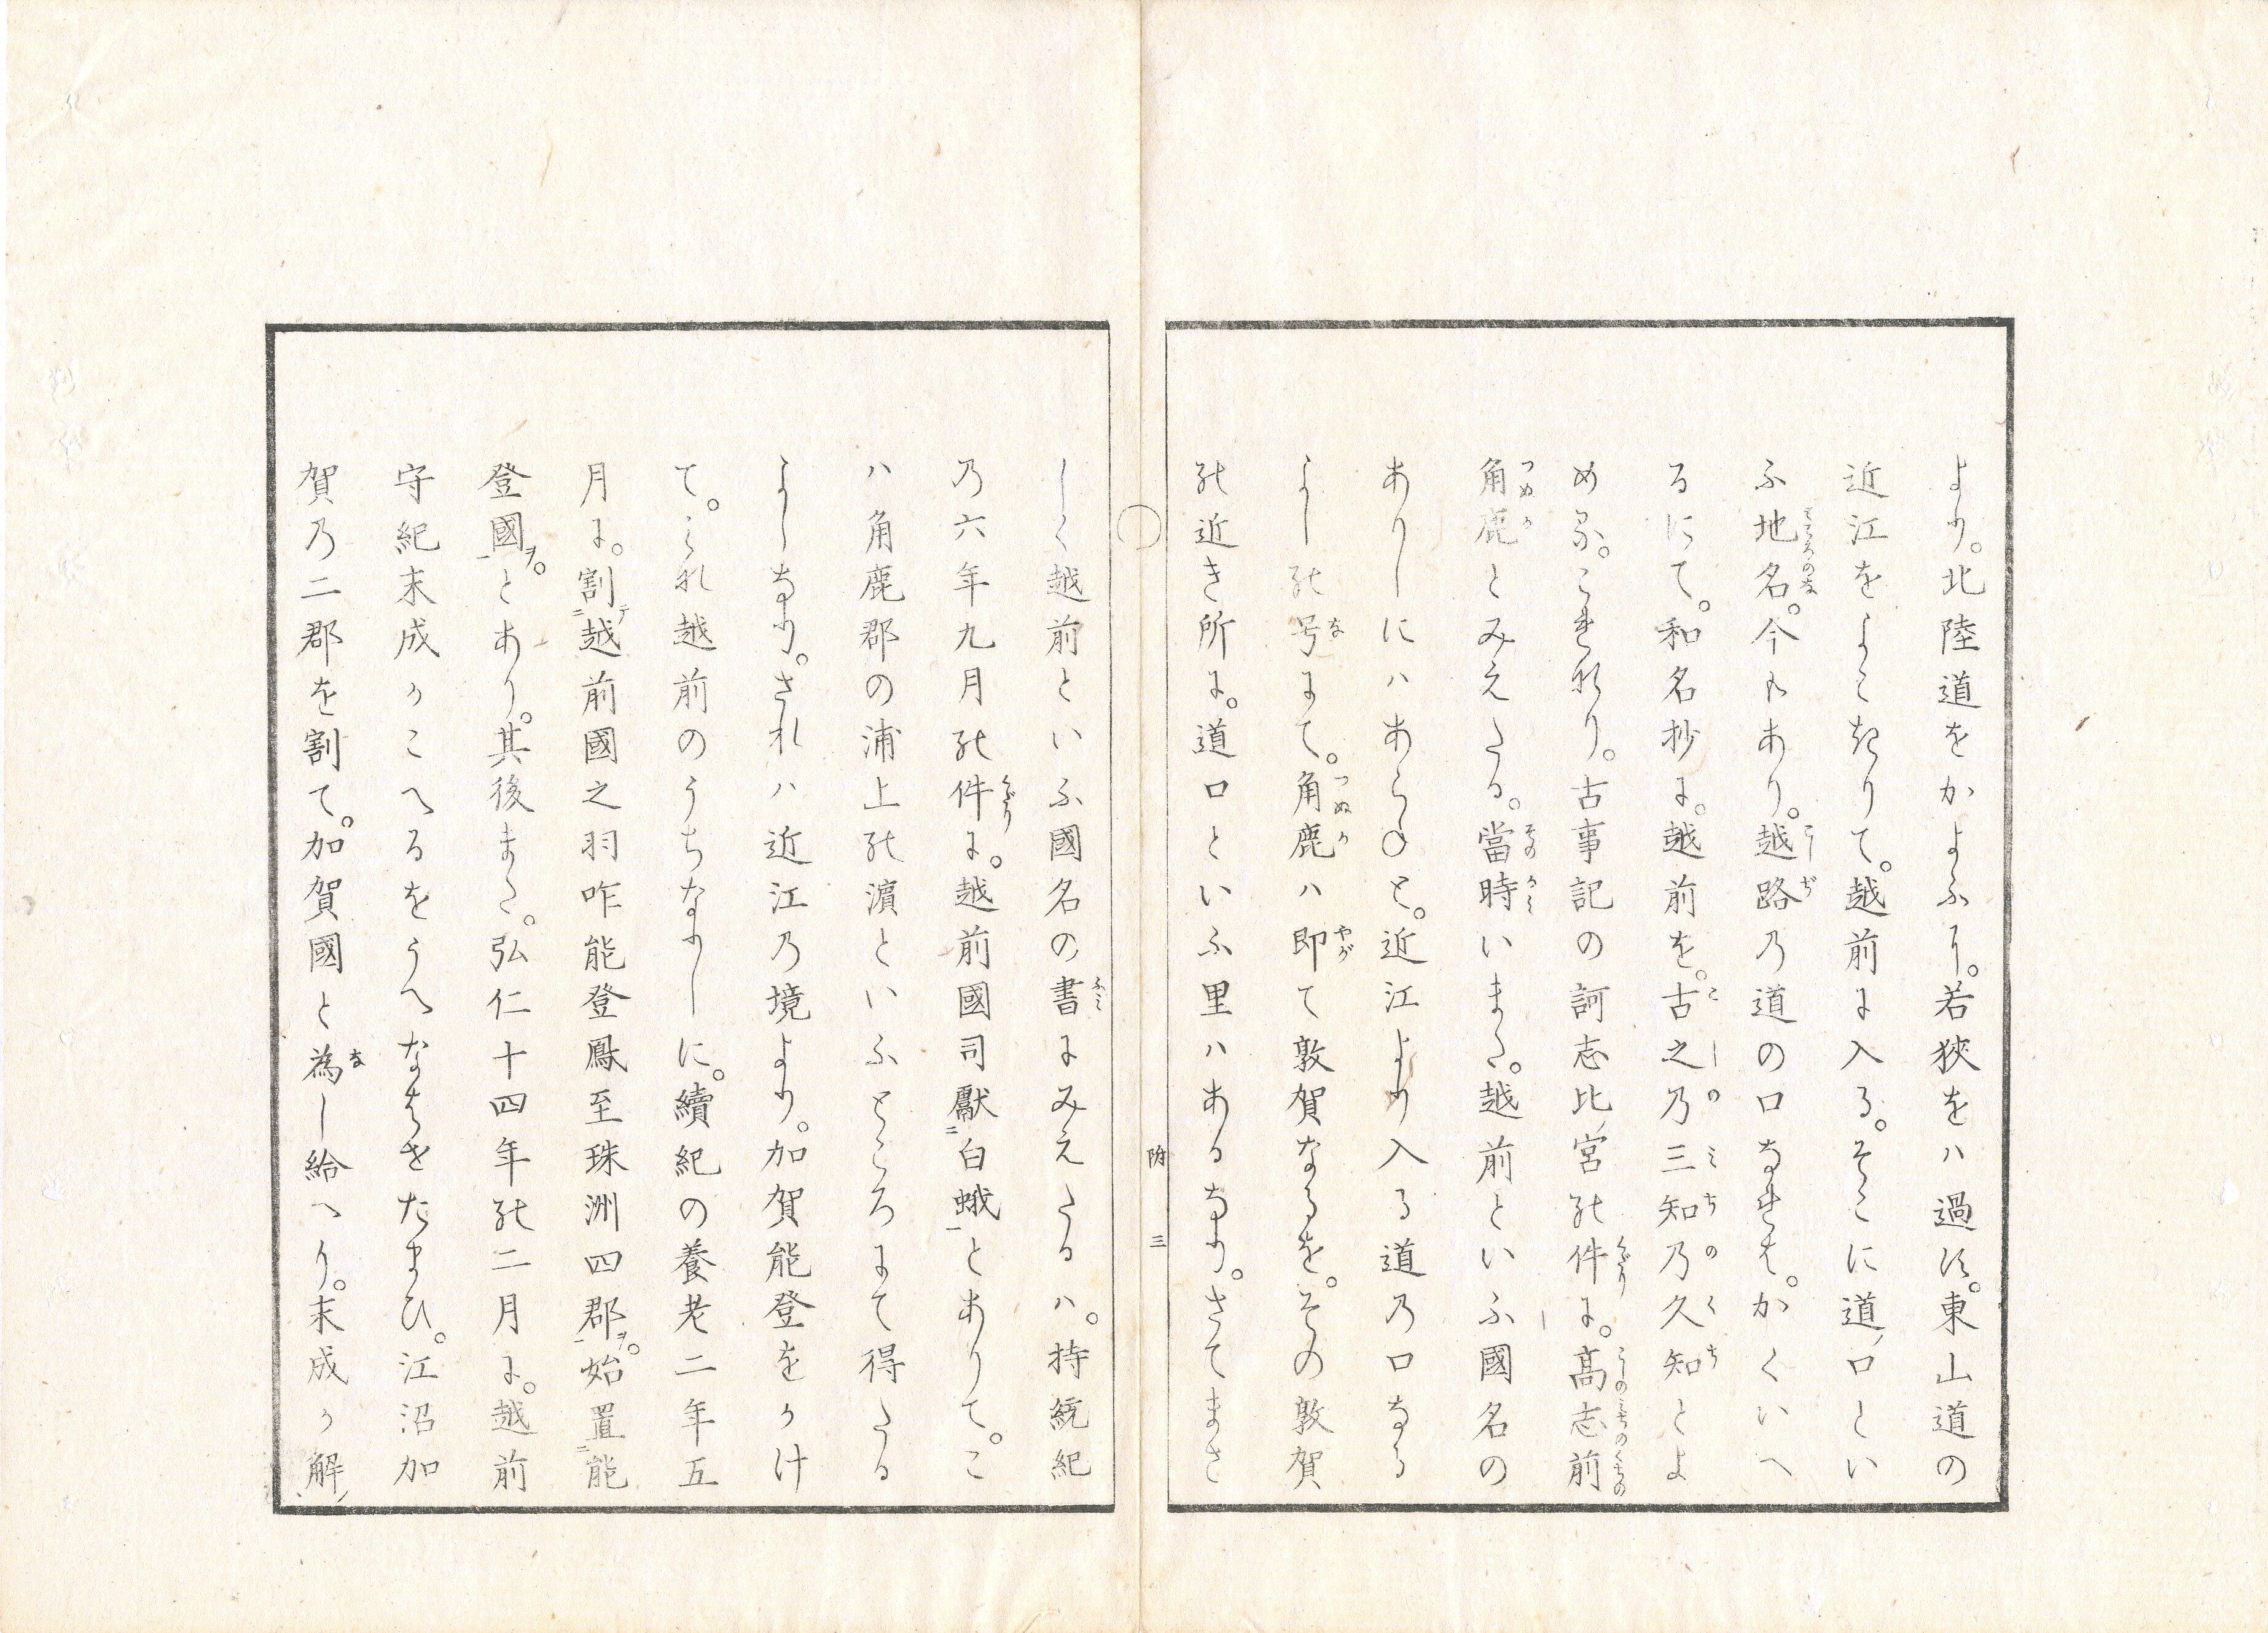 より。北陸道をかよふに。若狭をハ過に。東山道の
近江をよこきりて。越前に入る。そこに道ノ口とい
ふ地名。今もあり。越路乃道の口なれは。かくいへ
るにて。和名抄に。越前を。古之乃三知乃久知とよ
め
これなり。古事記の訶志比ノ宮乃件に。高志前
角鹿とみえたる。當時いまた。越前といふ國名の
ありしにハあらねと。近江より入る道乃口なる
よし乃号にて。角鹿ハ即て敦賀なるを。その敦賀
乃近き所に。道口といふ里ハあるなり。さてまさ
附 三
しく越前といふ國名の書にみえたるハ。持統紀
乃六年九月乃件に。越前國司獻二白蛾一とありて。こ
ハ角鹿郡の浦上乃濵といふところにて得たる
よしなり。されハ近江乃境より。加賀能登をかけ
て。みな越前のうちなりしに。續紀の養老二年五
月に。割テ二越前國之羽咋能登鳳至珠洲四郡ヲ一。始置二能
登國ヲ一。とあり。其後また。弘仁十四年乃二月に。越前
守紀末成かこへるをうへなはせたまひ。江沼加
賀乃二郡を割て。加賀國と為し給へり。末成か解ノ